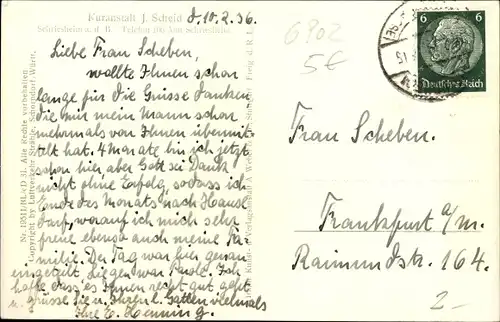 Kuranstalt J. Scheid
Schriesheim a. d. B. Telefon 106 Amt Schriesheim
d. 10.2.36.
Liebe Frau Scheben,
wollte Ihnen schon
lange für die Grüsse danken
die mir mein Mann schon
mehrmals von Ihnen übermit-
telt hat. 4 Monate bin ich jetzt
schon hier aber Gott sei Dank
nicht ohne Erfolg, sodass ich
Ende des Monats nach Hause
darf, worauf ich mich sehr
freue ebenso auch meine Fa-
milie. Der Tag war hier genau
eingeteilt. Liegen war Parole. Ich
hoffe dass es Ihnen recht gut geht
u. grüsse Sie u. Ihren l. Gatten vielmals
Ihre E. Henning.
Nr. 19511/RL/D 31. Alle Rechte vorbehalten
Copyright by Luftverkehr Strähle, Schorndorf, Württ.
6902
5€
6
Deutsches Reich
Frau Scheben.
Frankfurt a/m.
Raimundstr. 164.
2-